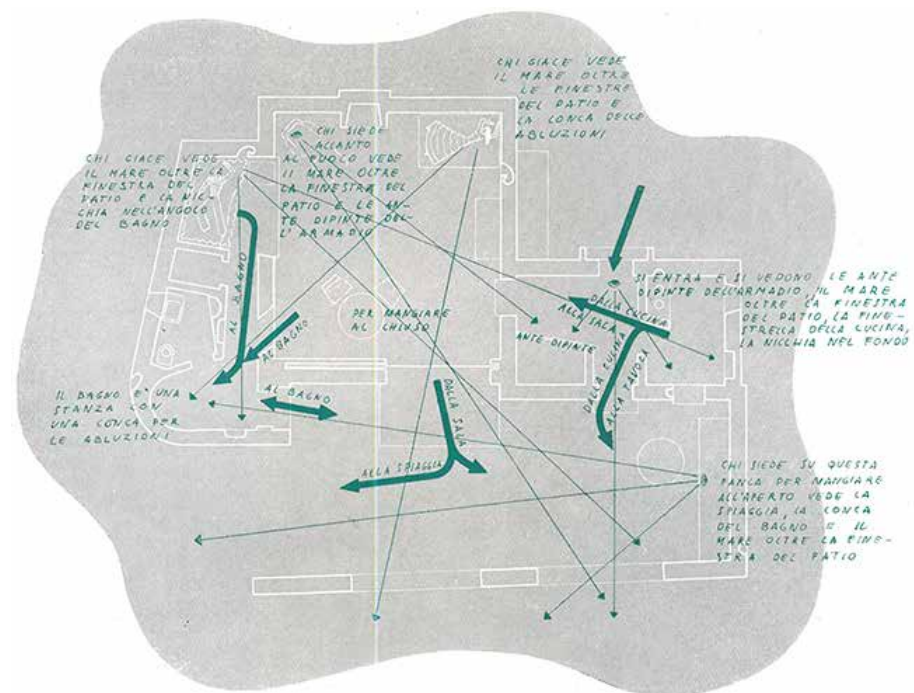 CHI GIACE VEDE
IL MARE OLTRE
LE FINESTRE
DEL PATIO E
LA CONCA DELLE
ABLUZIONI
CHI GIACE VEDE
IL MARE OLTRE LA
FINESTRA DEL
PATIO E LA NIC-
CHIA NELL'ANGOLO
DEL BAGNO
CHI SIEDE
ACCANTO
AL FUOCO VEDE
IL MARE OLTRE
LA FINESTRA DEL
PATIO E LE AN-
TE DIPINTE DEL-
L'ARMADIO
SI ENTRA E SI VEDONO LE ANTE
DIPINTE DELL'ARMADIO, IL MARE
OLTRE LA FINESTRA
DEL PATIO, LA FINE-
STRELLA DELLA CUCINA,
LA NICCHIA NEL FONDO
AL BAGNO
AL BAGNO
PER MANGIARE
AL CHIUSO
DALLA CUCINA
ALLA SALA
ANTE DIPINTE
DALLA CUCINA
ALLA TAVOLA
IL BAGNO E' UNA
STANZA CON
UNA CONCA PER
LE ABLUZIONI
AL BAGNO
DALLA SALA
ALLA SPIAGGIA
CHI SIEDE SU QUESTA
PANCA PER MANGIARE
ALL'APERTO VEDE LA
SPIAGGIA, LA CONCA
DEL BAGNO E IL
MARE OLTRE LA FINE-
STRA DEL PATIO